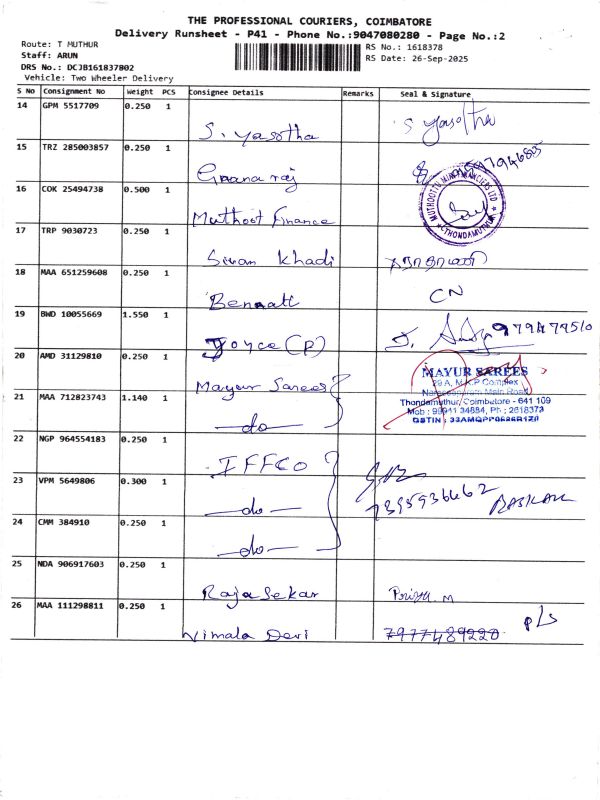 THE PROFESSIONAL COURIERS, COIMBATORE
Delivery Runsheet - P41 - Phone No.:9047080280 - Page No.:2
Route: T MUTHUR
RS No.: 1618378
Staff: ARUN
RS Date: 26-Sep-2025
DRS No.: DCJB161837802
Vehicle: Two Wheeler Delivery
S No Consignment No Weight PCS Consignee Details Remarks Seal & Signature
14 GPM 5517709 0.250 1 S. yasotha S yasotha
15 TRZ 285003857 0.250 1 Gnana raj
16 COK 25494738 0.500 1 Muthoot Finance
17 TRP 9030723 0.250 1 Sivan Khadi
18 MAA 651259608 0.250 1 Bennatt CN
19 BWD 10055669 1.550 1 Joyce (P)
20 AMD 31129810 0.250 1 Mayur Sarees
MAYUR SAREES
29 A, M.K.P Complex
Naraseepuram Main Road
Thondamuthur, Coimbatore - 641 109
Mob : 99941 34884, Ph : 2618373
21 MAA 712823743 1.140 1 do
22 NGP 964554183 0.250 1 IFFCO
23 VPM 5649806 0.300 1 do
7395936462 BASKAR
24 CMM 384910 0.250 1 do
25 NDA 906917603 0.250 1 Raja Sekar Priya. M
26 MAA 111298811 0.250 1 Vimala Devi 7977489220 P/s